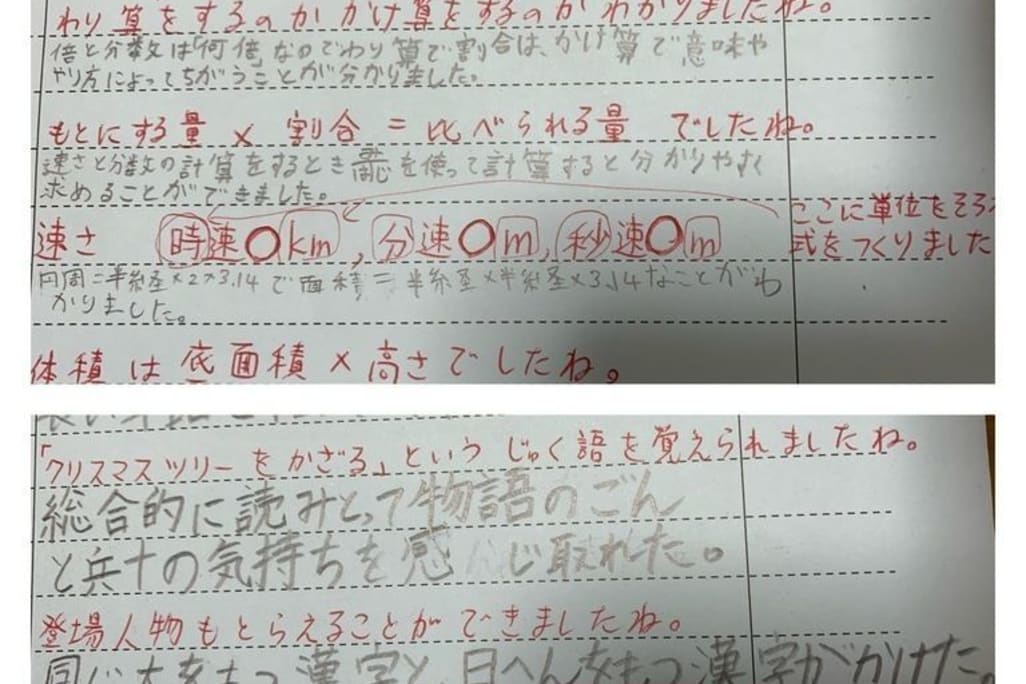 わり算をするのかかけ算をするのかわかりましたね。
倍と分数は何倍なのでわり算で割合は、かけ算で意味や
やり方によってちがうことが分かりました。
もとにする量 × 割合 = 比べられる量 でしたね。
速さと分数の計算をするとき を使って計算すると分かりやすく
求めることができました。
ここに単位をそろ
速さ 時速〇km, 分速〇m, 秒速〇m
式をつくりました
円周=半径×2×3.14で面積=半径×半径×3.14なことがわ
かりました。
体積は底面積×高さでしたね。
「クリスマスツリーをかざる」というじゅく語を覚えられましたね。
総合的に読みとって物語のごん
と兵十の気持ちを感じ取れた。
登場人物もとらえることができましたね。
同じ をもつ漢字と、日へんをもつ漢字がかけた。